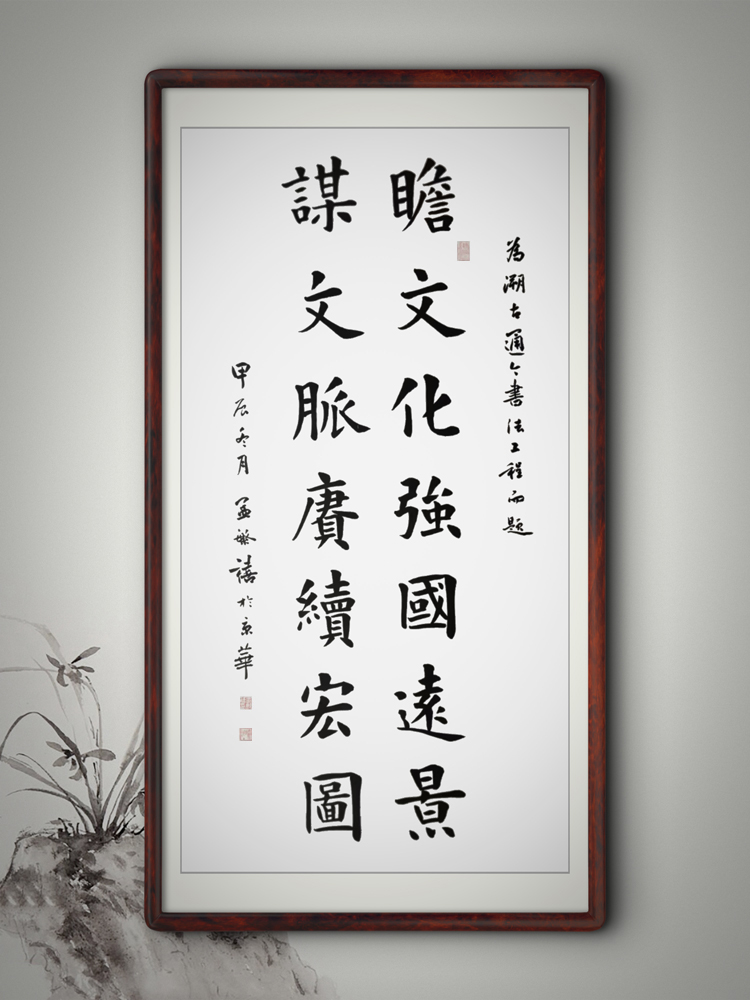 為溯古通今書法工程而題
瞻文化強國遠景
謀文脈賡續宏圖
甲辰冬月 孟繁禧於京華